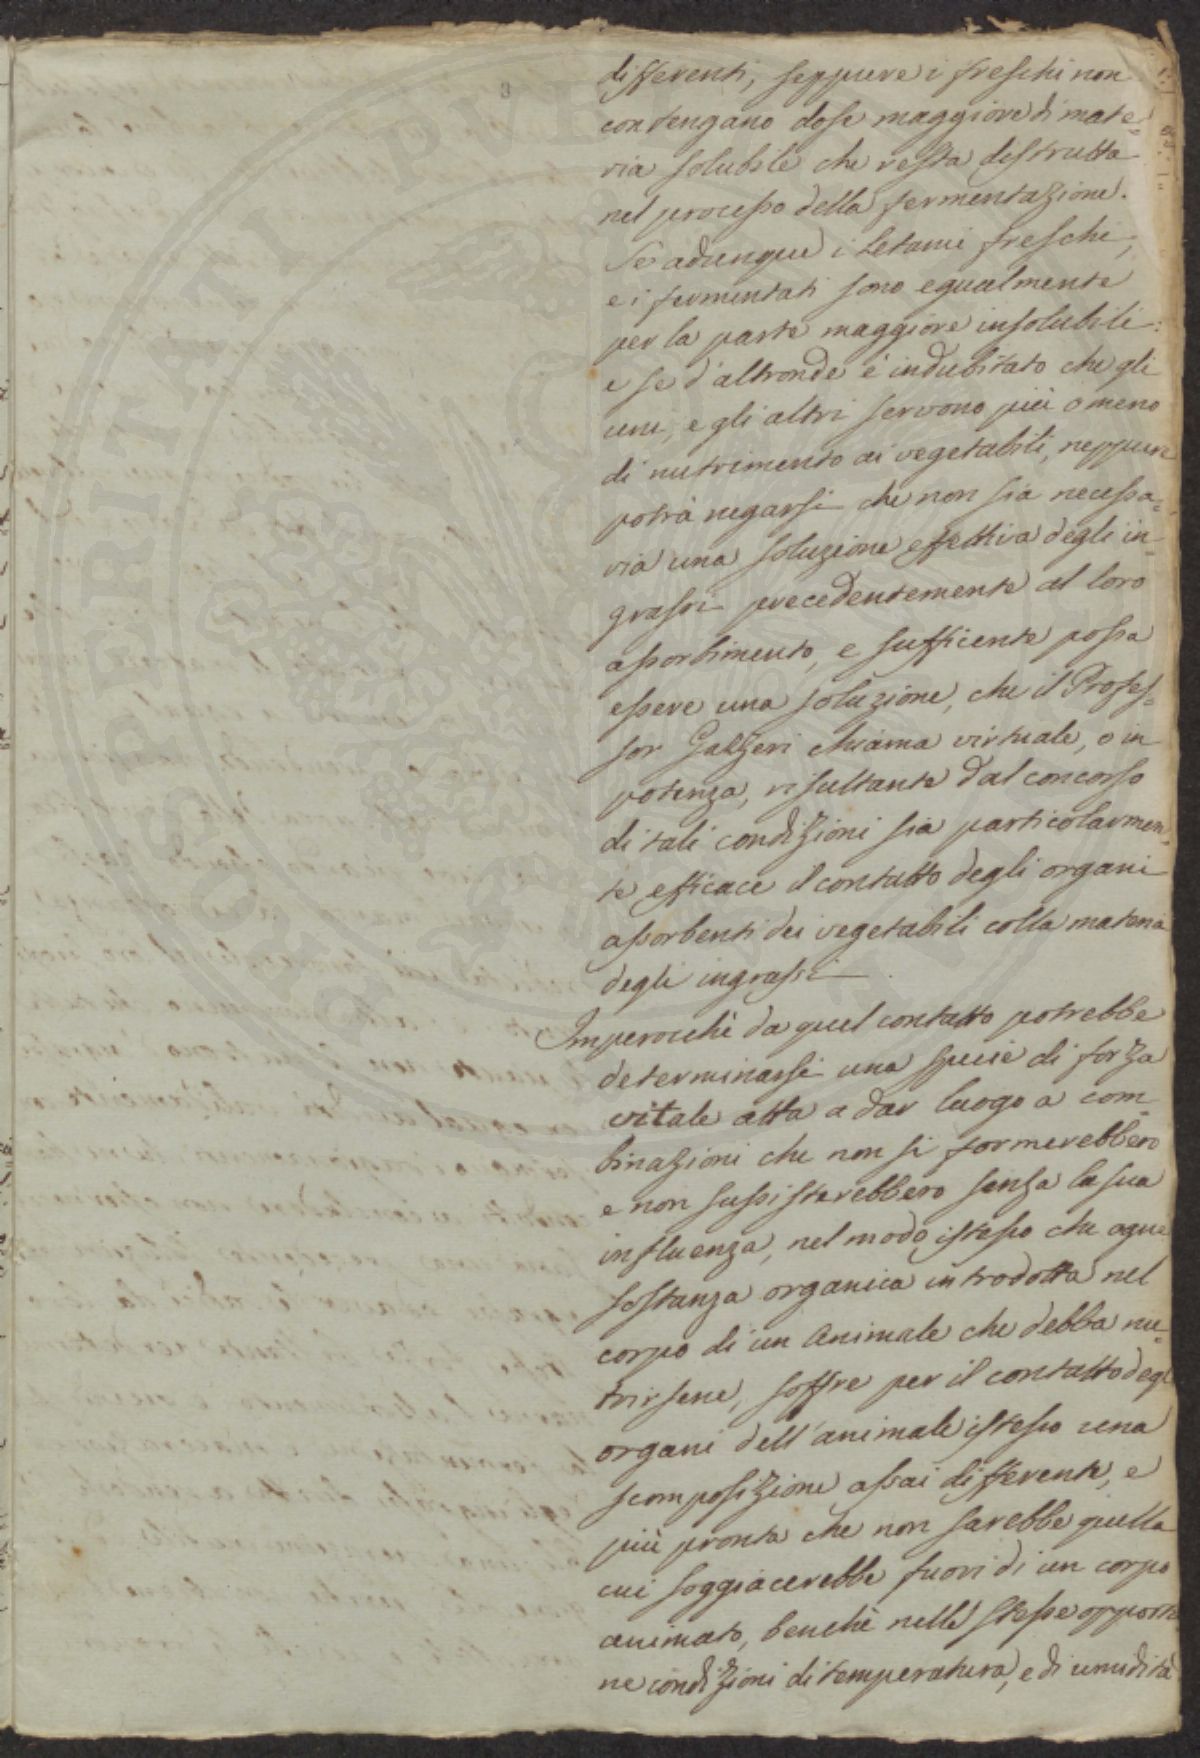 3
differenti, seppure i freschi non
contengano dose maggiore di mate=
ria solubile che resta distrutta
nel processo della fermentazione.
Se adunque i letami freschi,
e i fermentati sono egualmente
per la parte maggiore insolubili:
e se d'altronde è indubitato che gli
uni, e gli altri servono più o meno
di nutrimento ai vegetabili, neppure
potrà negarsi che non sia necessa=
ria una soluzione effettiva degli in=
grassi precedentemente al loro
assorbimento, e sufficente possa
essere una soluzione, che il Profes=
sor Gazzeri chiama virtuale, o in
potenza, risultante dal concorso
di tali condizioni sia particolarmen=
te efficace il contatto degli organi
assorbenti dei vegetabili colla materia
degli ingrassi
Imperocchè da quel contatto potrebbe
determinarsi una specie di forza
vitale atta a dar luogo a com=
binazioni che non si formerebbero
e non sussisterebbero senza la sua
influenza, nel modo istesso che ogne
sostanza organica introdotta nel
corpo di un Animale che debba nu=
trirsene, soffre per il contatto degl
organi dell'animale istesso una
scomposizione assai differente, e
più pronta che non sarebbe quella
cui soggiacerebbe fuori di un corpo
animato, benchè nelle stesse opportu
ne condizioni di temperatura, e di umidità